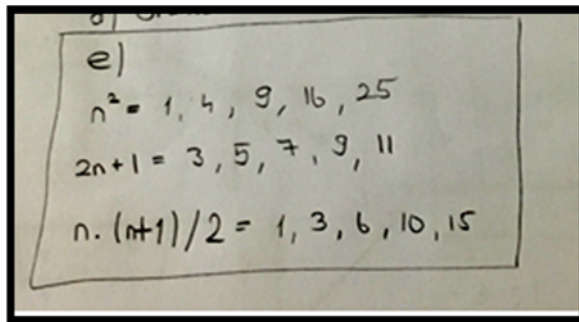 e)
n² = 1, 4, 9, 16, 25
2n+1 = 3, 5, 7, 9, 11
n. (n+1)/2 = 1, 3, 6, 10, 15